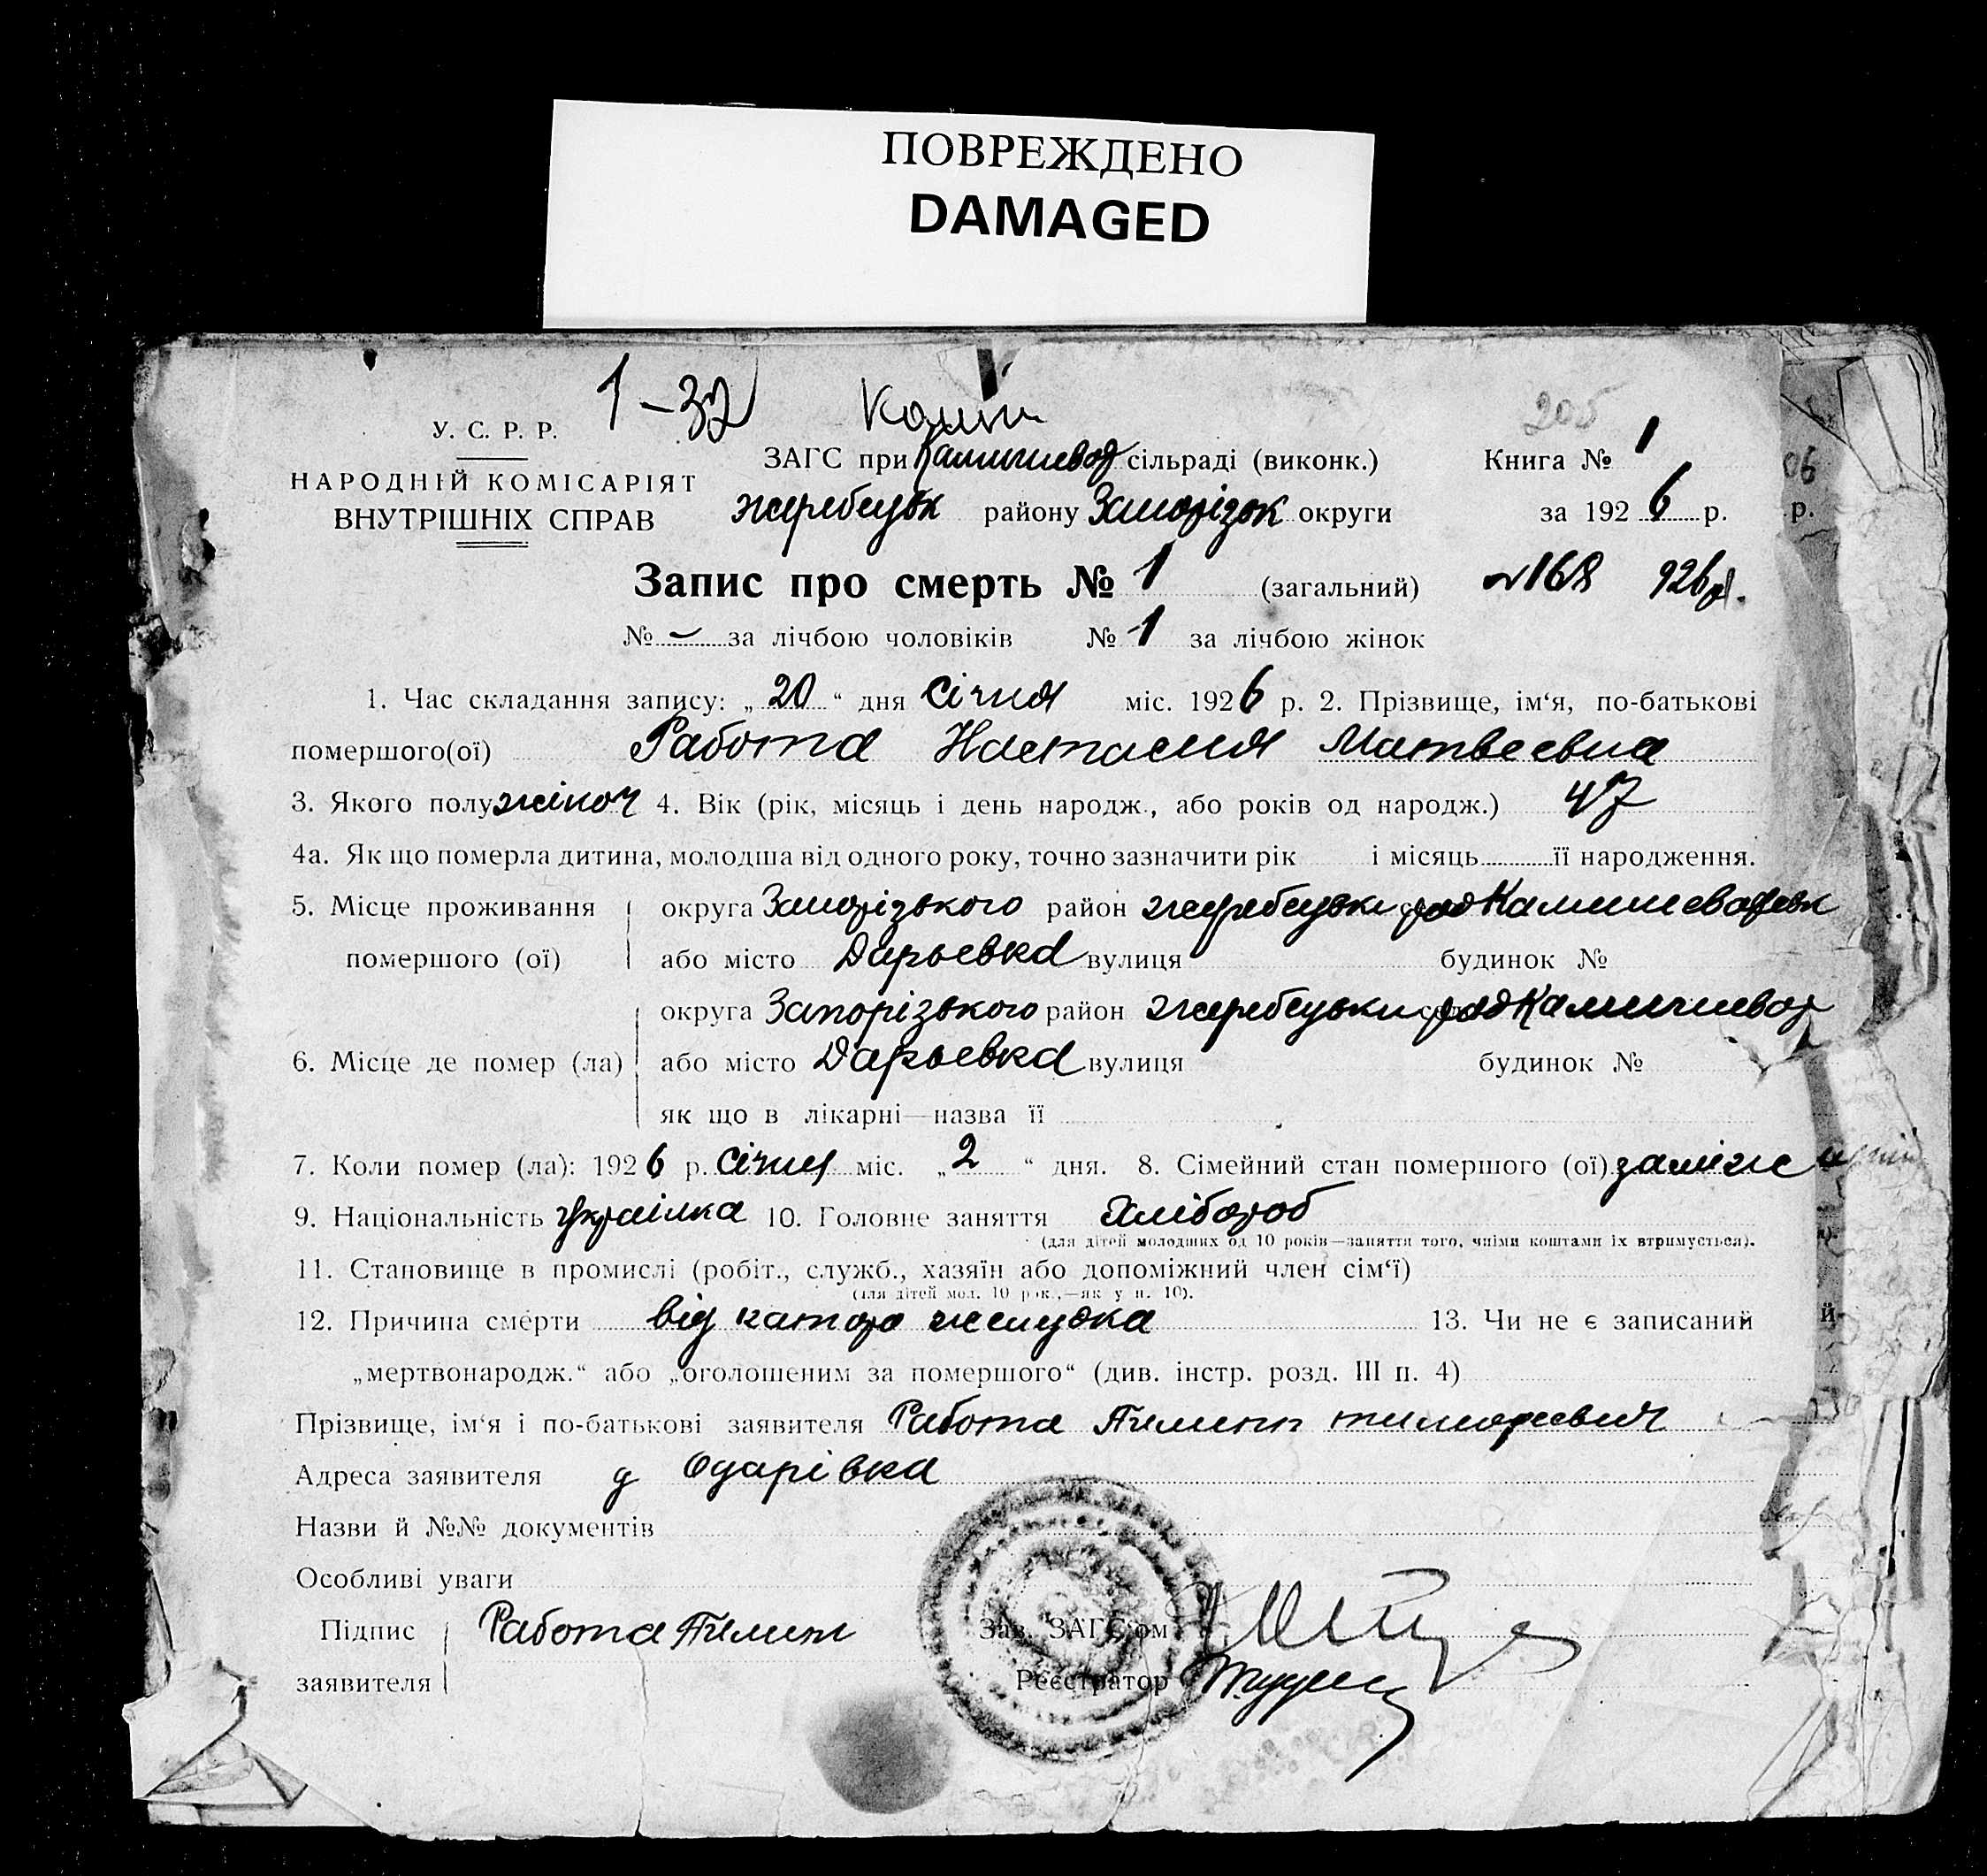 ПОВРЕЖДЕНО
DAMAGED
1-32
205
У. С. Р. Р.
НАРОДНІЙ КОМІСАРІЯТ
ВНУТРІШНІХ СПРАВ
ЗАГС при Камишевад сільраді (виконк.)
Книга № 1
жеребецьк району Запорізьк округи
за 1926 р.
Запис про смерть № 1 (загальний)
№168 926 р.
№ – за лічбою чоловіків № 1 за лічбою жінок
1. Час складання запису: „20“ дня Січня міс. 1926 р. 2. Прізвище, ім‘я, по-батькові
помершого(ої) Работа Настасия Матвеевна
3. Якого полу жіноч 4. Вік (рік, місяць і день народж., або років од народж.) 47
4а. Як що померла дитина, молодша від одного року, точно зазначити рік і місяць її народження.
5. Місце проживання помершого (ої)
округа Запорізького район жеребецьки рад Камишевадськ
або місто Дарьевка вулиця будинок №
6. Місце де помер (ла)
округа Запорізького район жеребецьки рад Камишевад
або місто Дарьевка вулиця будинок №
як що в лікарні—назва її
7. Коли помер (ла): 1926 р. Січня міс. „2“ дня. 8. Сімейний стан помершого (ої) заміж
9. Національність українка 10. Головне заняття Хлібороб
(для дітей молодших од 10 років—заняття того, чиїми коштами їх втримується).
11. Становище в промислі (робіт., служб., хазяїн або допоміжний член сім‘ї)
(для дітей мол. 10 рок.,—як у п. 10).
12. Причина смерти від катара желудка 13. Чи не є записаний
„мертвонародж.“ або „оголошеним за помершого“ (див. інстр. розд. III п. 4)
Прізвище, ім‘я і по-батькові заявителя Работа Пилип тимофеевич
Адреса заявителя д Одарівка
Назви й №№ документів
Особливі уваги
Підпис заявителя Работа Пилип
Зав. ЗАГС‘ом
Реєстратор